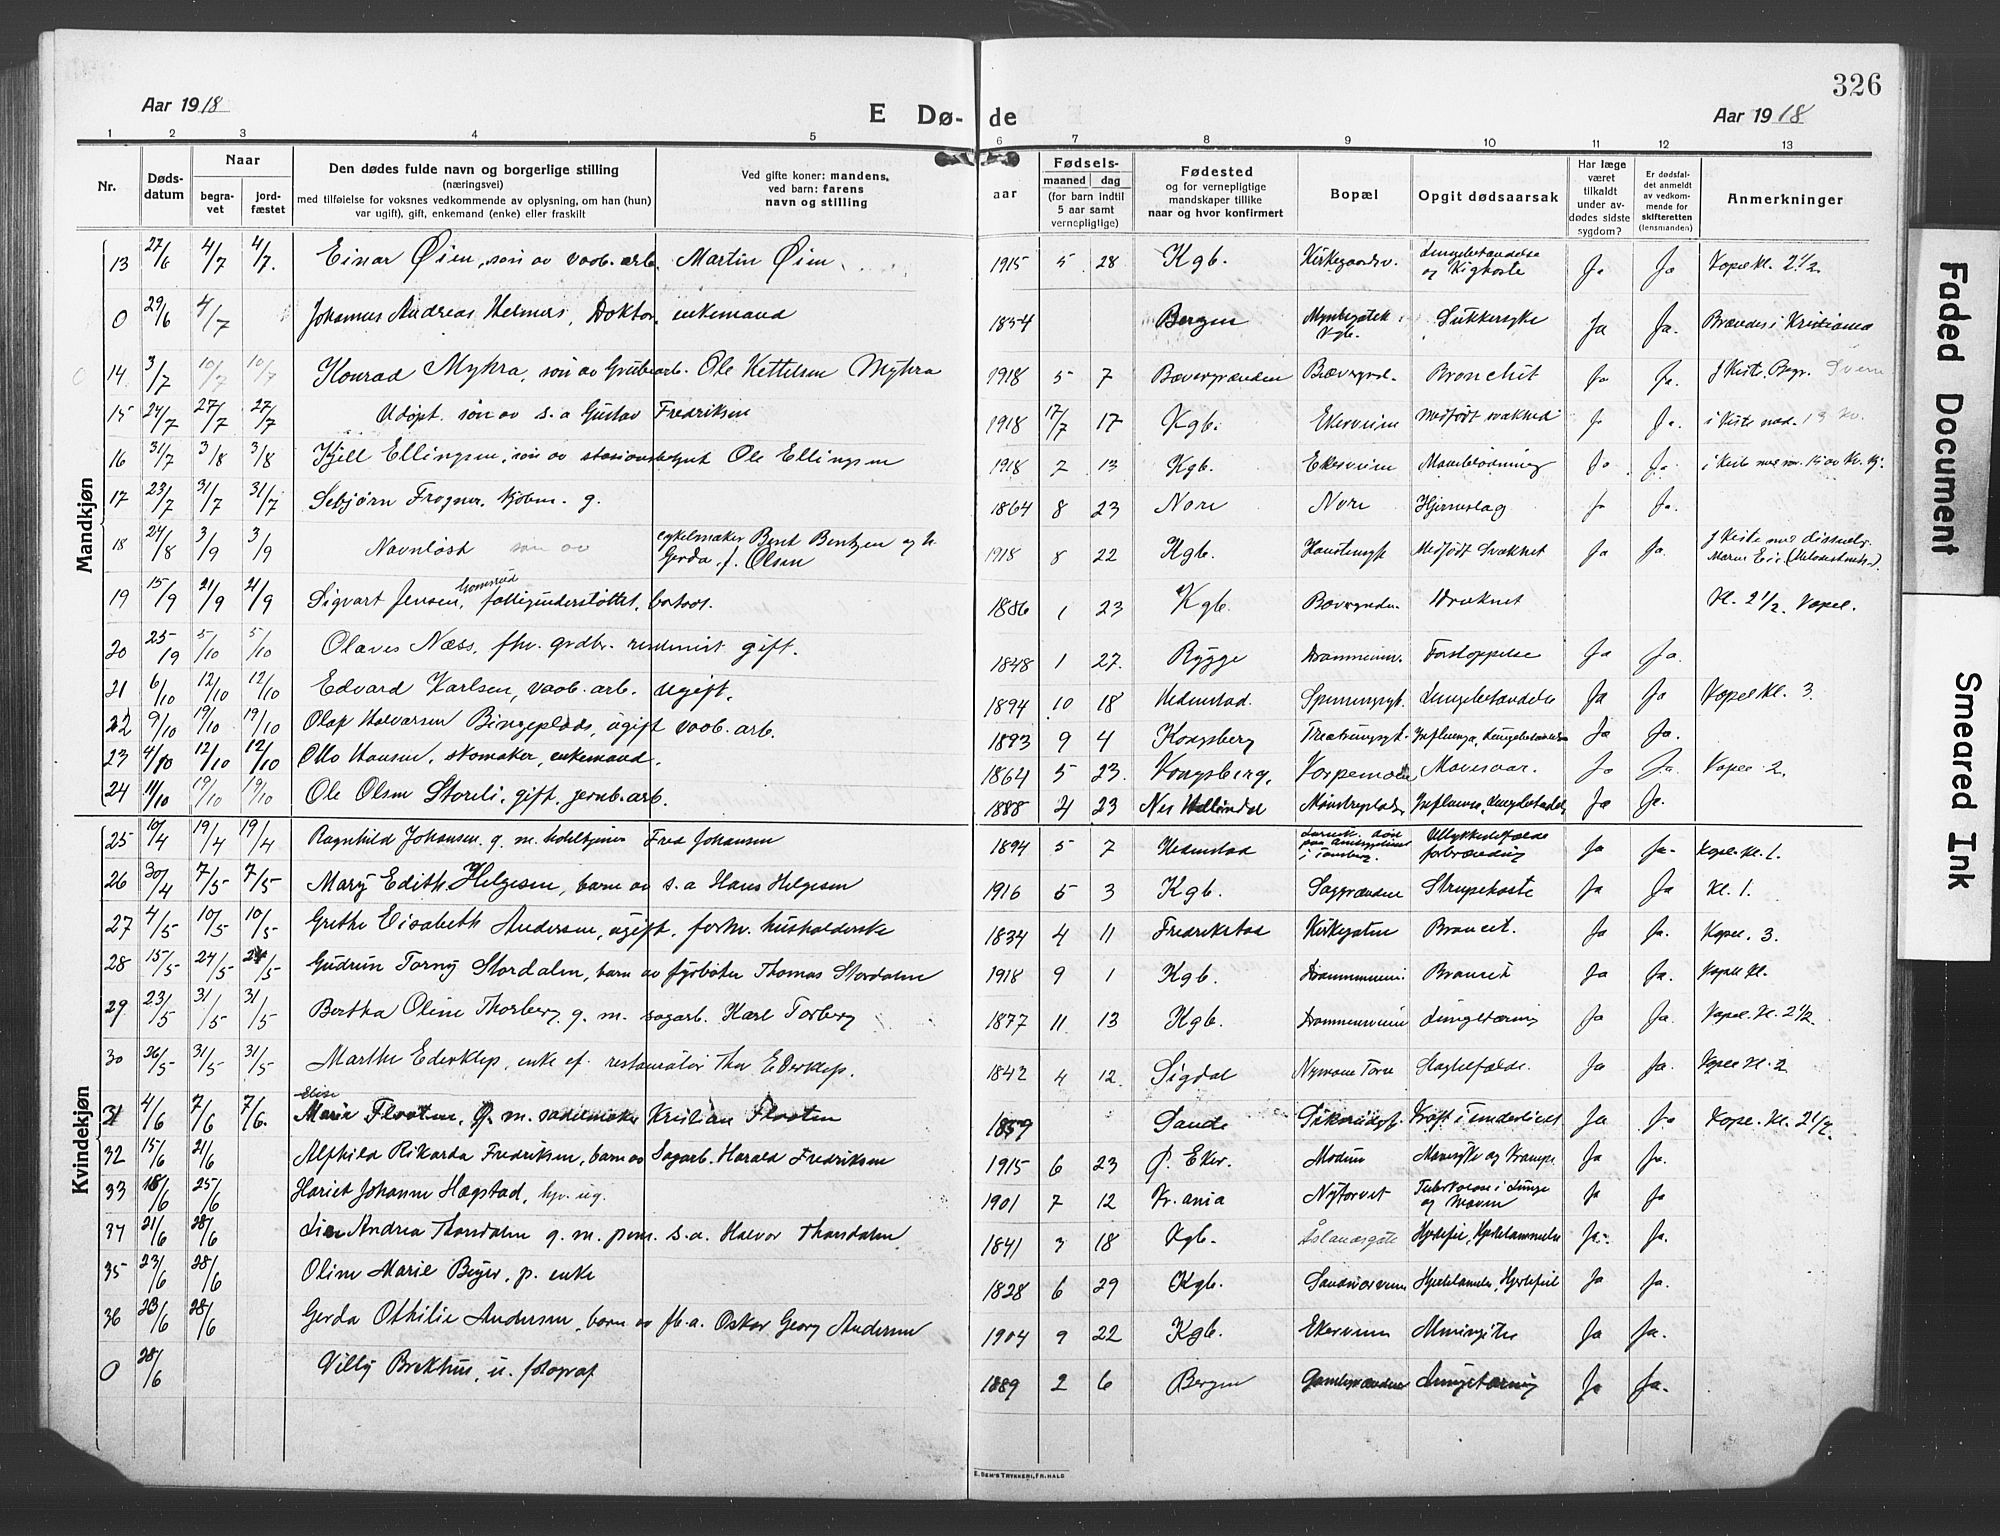 326
Aar 1918
E Dø- de
Aar 1918
1 2 3 4 5 6 7 8 9 10 11 12 13
Nr.
Døds-
datum
Naar
begra-
vet
jord-
fæstet
Den dødes fulde navn og borgerlige stilling
(næringsvei)
med tilføielse for voksnes vedkommende av oplysning, om han (hun)
var ugift), gift, enkemand (enke) eller fraskilt
Ved gifte koner: mandens,
ved barn: farens
navn og stilling
aar
Fødsels-
maaned dag
(for barn indtil
5 aar samt
vernepligtige)
Fødested
og for vernepligtige
mandskaper tillike
naar og hvor konfirmert
Bopæl
Opgit dødsaarsak
Har læge
været
tilkaldt
under av-
dødes sidste
sygdom?
Er dødsfal-
det anmeldt
av vedkom-
mende for
skifteretten
(lensmanden)
Anmerkninger
Mandkjøn
13 27/6 4/7 4/7. Einar Øien, søn av vaab. arb. Martin Øien 1915 5 28 Kgb. Kirkegaardsv. Lungebetændelse og Kighoste Ja Ja Kapel kl. 2 1/2.
0 29/6 4/7 Johannes Andreas Helmers, Doktor, enkemand 1854 Bergen Kgb. Sukkersyke Ja Ja. Brændes i Kristiania
14 3/7 10/7 10/7 Konrad Myhra, søn av Grubearb. Ole Kettelsen Myhra 1918 5 7 Bævergrænden Bævergrd. Bronchit Ja Ja. J Kiste. Begr.
15 24/7 27/7 27/7 Udøpt søn av s. a Gustav Fredriksen 1918 17/7 17 Kgb. Ekerveien Medfødt svakhed Ja Ja. i Kiste med
16 31/7 3/8 3/8 Kjell Ellingsen, søn av stasionsbetjent Ole Ellingsen 1918 7 13 Kgb. Ekerveien Maveblødning Ja Ja. i Kiste
17 23/7 31/7 31/7 Sebjørn Frogner. kjøbm. g. 1864 8 23 Nore Nore Hjerneslag Ja Ja.
18 24/8 3/9 3/9 Navnløst søn av cykelmaker Bent Bentzen og h. Gerda, f. Olsen 1918 8 22 Kgb. Medfødt Svakhet Ja Ja. J Kiste med
19 15/9 21/9 21/9 Sigvart Jensen, fattigunderstøttet, 1886 1 23 Kgb. Bævergrden. Druknet Kl. 2 1/2 Kapel.
20 25/9 5/10 5/10 Olaves Næss, fhv. grdbr. gift. 1848 1 27. Rygge Drammensv. Forstoppelse Ja Ja.
21 6/10 12/10 12/10 Edvard Karlsen, vaab. arb. ugift. 1894 10 18 Hedenstad. Lungebetændelse Ja Ja Kapel Kl. 3.
22 9/10 19/10 19/10 Olaf Halvorsen Bingeplads, ugift vaab. arb. 1893 9 4 Kongsberg Influenza, Lungebetændelse Ja Ja.
23 4/10 12/10 12/10 Otto Hansen, skomaker, enkemand. 1864 5 23. Kongsberg. Mavesaar. Ja Ja. Kapel 2.
24 11/10 19/10 19/10 Ole Olsen Storeli, gift. jernb. arb. 1888 4 23 Nes Hallingdal Influensa, Lungebetændel. Ja Ja.
Kvindekjøn
25 10/4 19/4 19/4 Ragnhild Johansen. g. m. Fred Johansen 1894 5 7 Hedenstad Ulykkestilfælde forbrænding Ja Ja. Kapel. Kl. 1.
26 30/4 7/5 7/5 Mary Edith Helgesen, barn av s. a Hans Helgesen 1916 5 3 Kgb. Saggrænden Strupehoste Ja Ja Kl. 1.
27 4/5 10/5 10/5 Grethe Elisabeth Andersen, ugift, forhv. husholderske 1834 4 11 Fredrikstad Kirkegaten Broncit. Ja Ja. Kapel. 3.
28 15/5 24/5 24/5 Gudrun Torny Stordalen, barn av fyrbøter Thomas Stordalen 1918 9 1 Kgb. Drammensvei. Broncit Ja Ja. Kapel Kl.
29 23/5 31/5 31/5 Bertha Oline Thorberg g. m. sagarb. Karl Torberg 1877 11 13 Kgb. Drammensveien Lungetæring Ja Ja. Kapel. Kl. 2 1/2.
30 26/5 31/5 31/5 Marthe Ederklep, enke ef. restauratør Thr Ederklep. 1842 4 12. Sigdal Nymoens Torv Slagtilfælde. Ja Ja. Kapel Kl. 2
31 4/6 7/6 7/6. Elise Marie Flooten, g. m. sadelmaker Kristian Flooten 1859 Sande Kræft i underlivet Ja Ja Kapel. Kl. 2 1/2.
32 15/6 21/6 Alfhild Rikarda Fredriksen, barn av Sagarb. Harald Fredriksen 1915 6 23 Ø. Eker. Modum Mavesyke og Krampe Ja Ja.
33 18/6 25/6 Hariet Johanne Hægstad, ug. 1901 7 12 Kr. ania Nytorvet Tuberkulose i Lunge og Maven Ja Ja
34 21/6 28/6 Andrea Thorsdalen g. m. pens. s. a. Halvor Thorsdalen 1841 3 18 Kgb. Hjertefeil, Hjertelammelse Ja. Ja.
35 23/6 28/6 Oline Marie Beyer, p. enke 1828 6 29 Kgb. Hjertelamelse, Hjertefeil Ja Ja.
36 23/6 28/6 Gerda Othilie Andersen, barn av fb. a. Oskar Georg Andersen 1904 9 22 Kgb. Ekerveien Meningites Ja Ja.
0 28/6 Villy Brekhus, u. fotograf 1889 2 6 Bergen Gamlegrænden Lungetæring Ja Ja.
E. SEM'S TRYKKERI, FR. HALD
Faded Document
Smeared Ink